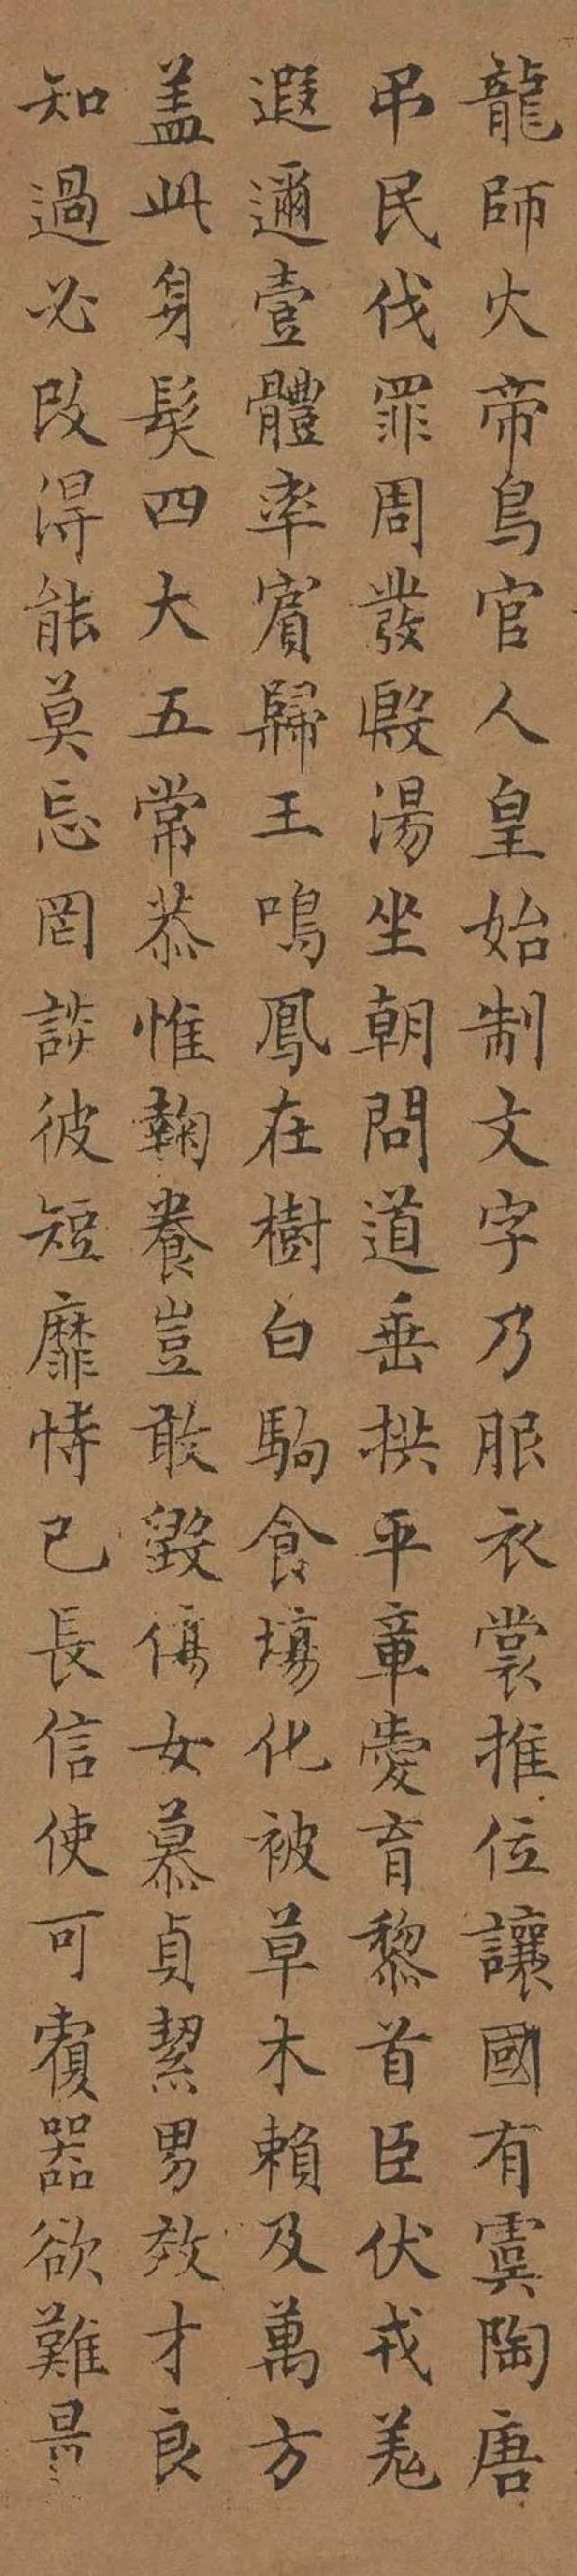 龍師火帝鳥官人皇始制文字乃服衣裳推位讓國有虞陶唐
弔民伐罪周發殷湯坐朝問道垂拱平章愛育黎首臣伏戎羌
遐邇壹體率賓歸王鳴鳳在樹白駒食場化被草木賴及萬方
盖此身髮四大五常恭惟鞠養豈敢毀傷女慕貞絜男效才良
知過必改得能莫忘罔談彼短靡恃己長信使可覆器欲難量